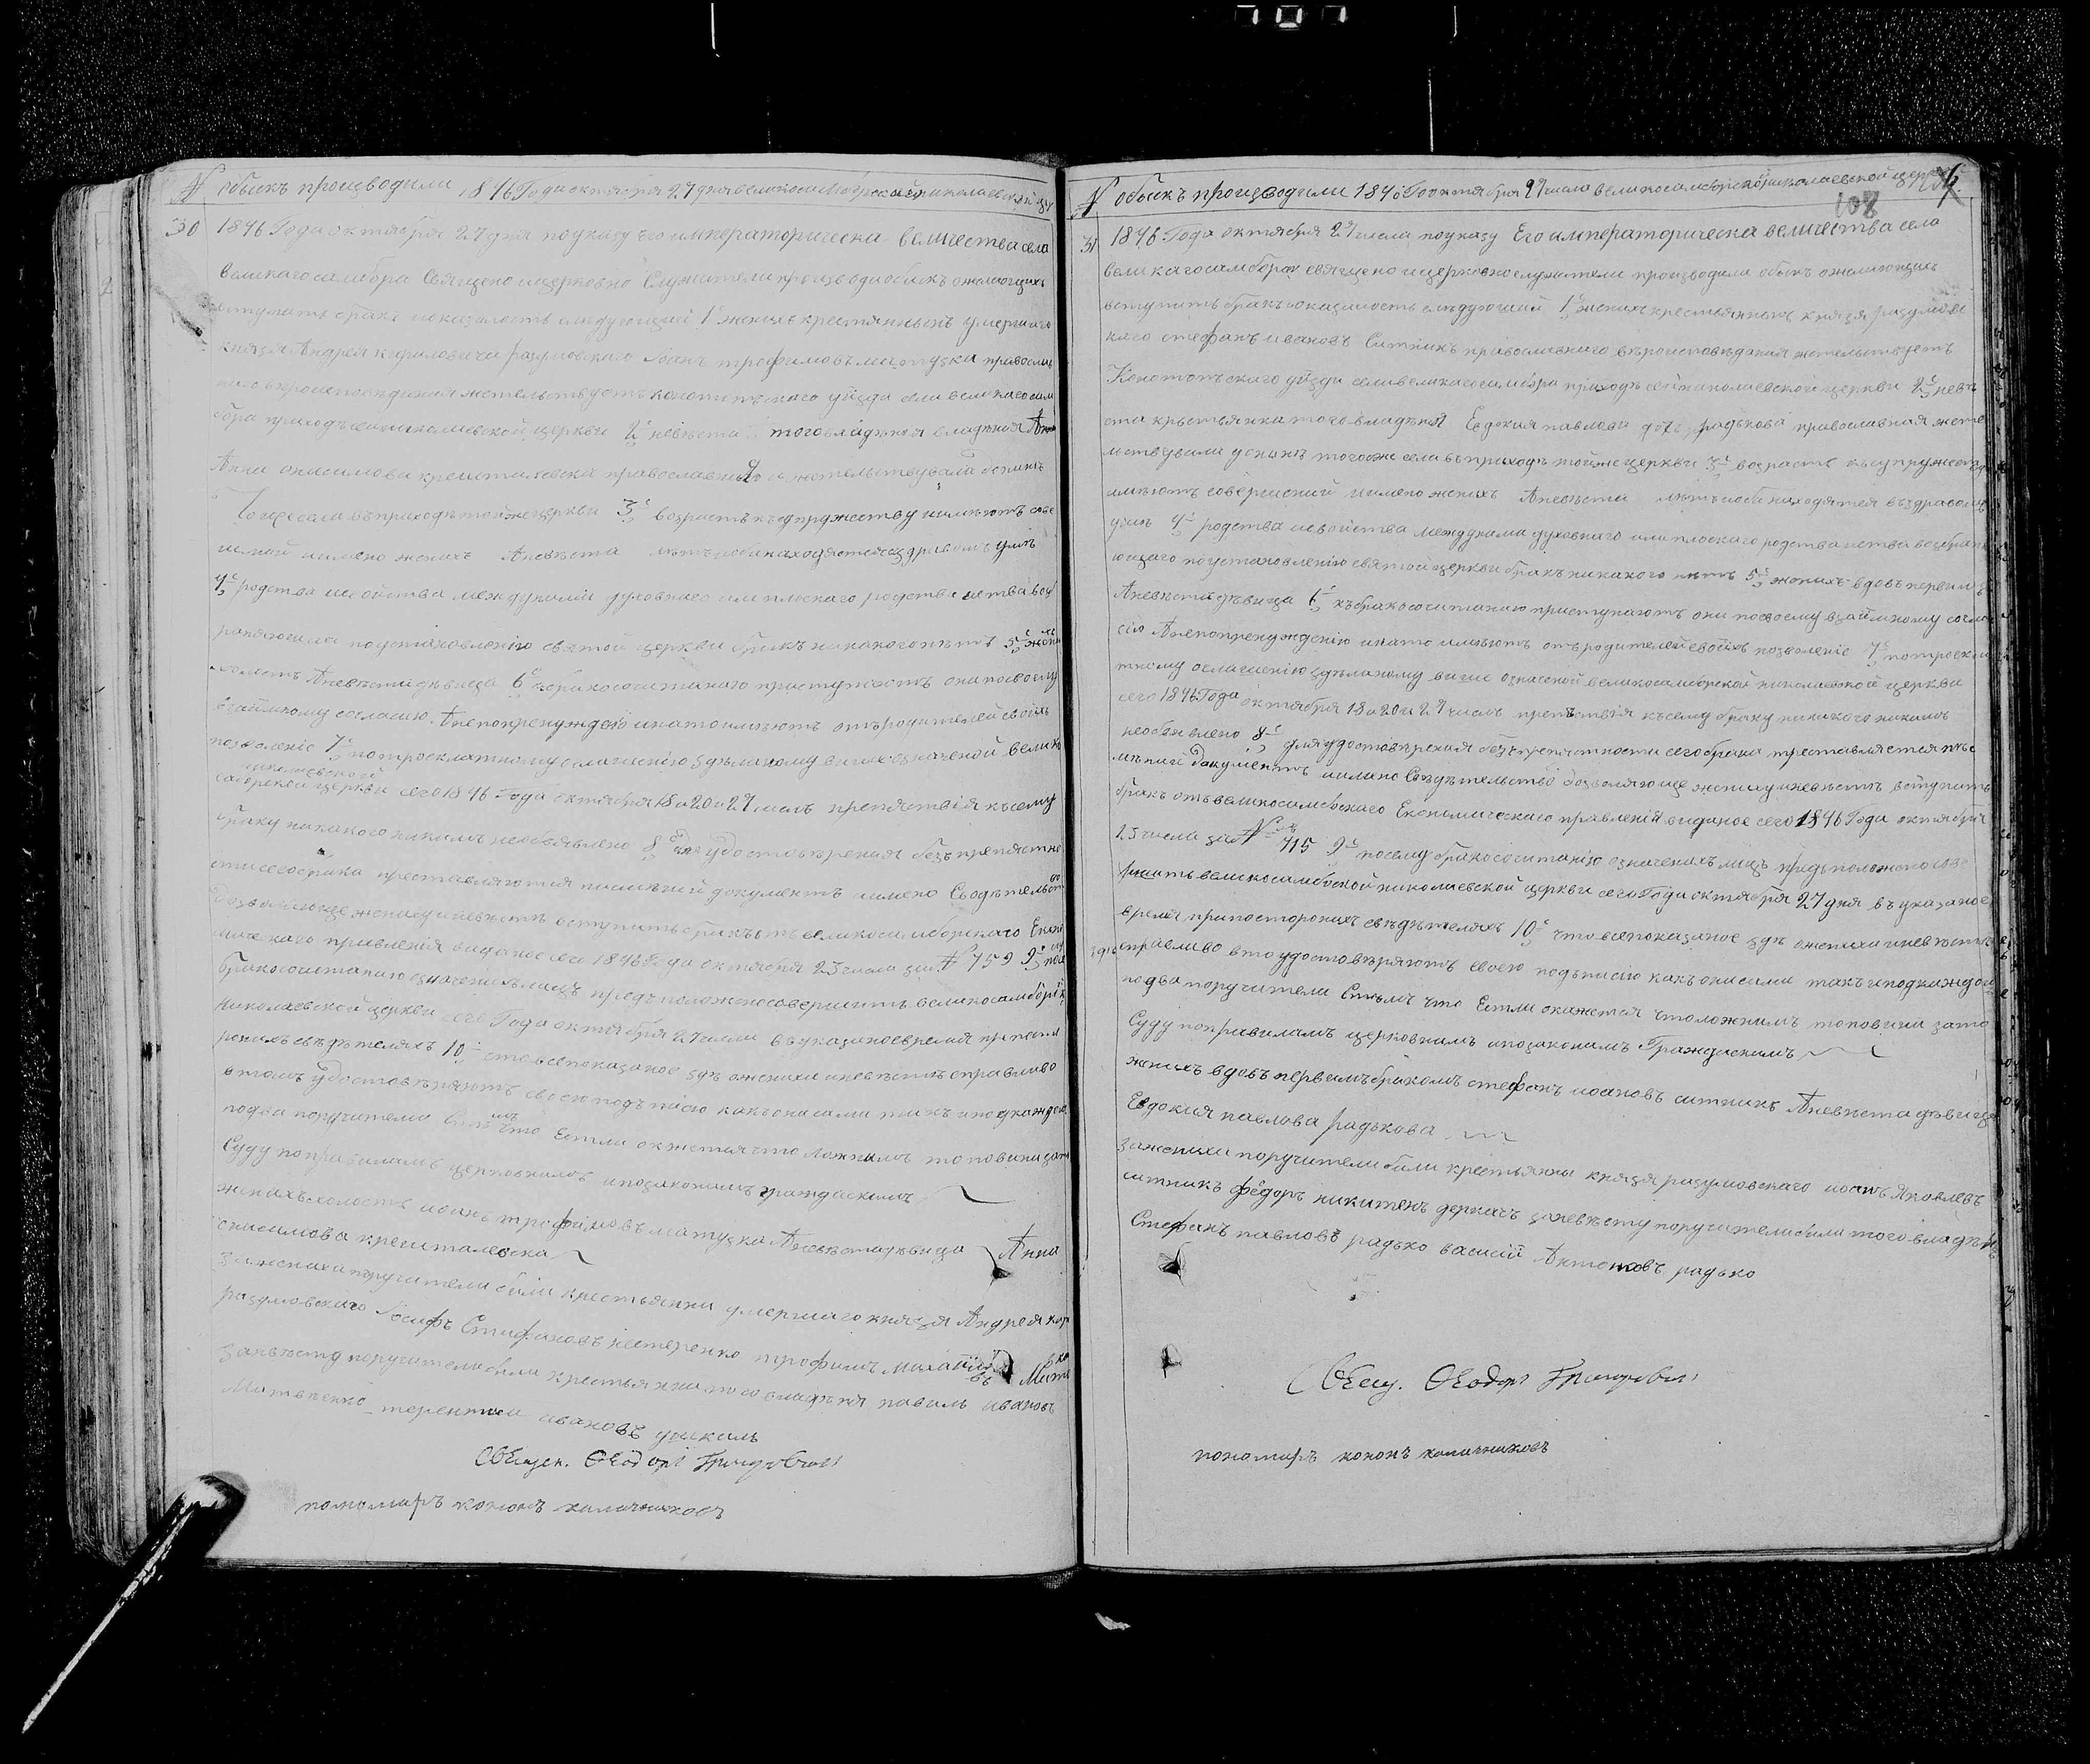 № обыскъ производили 1846 Года октября 27 дня великосамборской николаевской
30 1846 Года октября 27 дня по указу Его императорическа величества села
великаго самбора Священо ицерковно Служители обискъ ожелающихъ
бракъ иоказалость следующий 1е женихъ крестянинъ умершаго
князя Андрея кириловича разумовскаго трофимовъ матузка
жетельствуетъ конотопскаго уйзда села великаго сам
бора приходъ николаевской церкви 2е невѣста того владѣния
Анна онисимова крешталевска православная жетельствувала
тогоже села въприходѣ тойже церкви 3е возрастъ ксупружеству имѣютъ сове
имено женихъ Аневѣста лѣтъ находятся здравомъ умѣ
4е родства исвойства междуними духовнаго или плоскаго родства
поустановлению святой церкви бракъ никакого нѣтъ 5е
Аневѣста дѣвица 6е кбракосочитанию приступаютъ они посвоему
взаймному согласию Анепопренуждению инато имѣютъ отъродителей своихъ
позволение 7е потроекратному огласению зделаному више означеной велико
николаевской
самборской церкви сего 1846 Года октября 18 и 20 и 27 числъ препятствия ксему
браку никакого никимъ необявлено 8е для удостовѣрения безъ препятстно
сти сегобрака преставляются писменний документъ имено Свидетельст
дозволяюще жениху иневѣстѣ вступить бракъ отъ великосамборскаго Еконо
мическаго правления виданое сего 1846 Года октября 23 числа за № 759 9е
бракосочитанию означенихълицъ предъположено совершить великосамборск
Николаевской церкви сего Года октября 27 числа въуказаноевремя припосто
ронихъ свѣдѣтеляхъ 10е сто всепоказаное здѣ оженихи иневѣстѣ справливо
втомъ удостовѣряютъ своею подъписию какъ они сами такъ иподкаждому
подва поручители Стѣмъ что Естли окжется что ложнимъ то повини зато
Суду поправиламъ церковнимъ ипозаконамъ граждаскимъ
женихъ холостъ иоанъ трофимовъ матузка Аневѣста дѣвица Анна
онисимова крешталевска
Заженихи поручители били крестьянни умершаго князя Андрея
разумовскаго Иосифъ Стифановъ нестеренко трофимъ
Заневѣсту поручители били крестьянни того владѣния павилъ ивановъ
Матвѣенко терентий ивановъ
Свѣщен. Ѳеодоръ Григоровичъ
пономаръ кононъ калачниковъ
№ обыскъ производили 1846 Го октября 27 числа великосамборской николаевской церкви
108
31 1846 Года октября 27 числа по указу Его императорическа величества села
великаго самбора священо ицерковнослужители производили обыскъ ожелающихъ
вступить бракъ иоказалость слѣдующий 1е женихъ крестьянинъ князя разумовс
каго стефанъ ивановъ Ситникъ православнаго вѣроисповѣдания жетельствуетъ
Конотопъскаго уйзда села великаго самбора приходъ николаевской церкви 2е невѣ
ста крестьянка того владѣния Евдокия павлова дочь радькова православная жете
льствувала доныне тогоже села въприходѣ тойже церкви 3е возрастъ ксупружест
имѣютъ совершений имено женихъ Аневѣста лѣтъ иоба находятся въздравомъ
умѣ 4е родства исвойства междуними духовнаго или плоскаго родства
ющаго поустановлению святой церкви бракъ никакого нѣтъ 5е женихъ вдовъ первимъ
Аневѣста дѣвица 6е къбракосочитанию приступаютъ они посвоему взаймному согла
сию Анепопренуждению инато имѣютъ отъродителей своихъ позволение 7е потроекра
тному огласению зделаному више означеной великосамборской николаевской церкви
сего 1846 Года октября 18 и 20 и 27 числъ препятствия ксему браку никакого никимъ
необявлено 8е для удостовѣрения безъпрепятности сегобрака преставляется пис
мѣний документъ имено Свидѣтельство дозволяюще жениху иневѣстѣ вступить
бракъ отъвеликосамборскаго Економическаго правления виданое сего 1846 Года октября
23 числа за № 715 9е посему бракосочитанию означенихъ лицъ предъположено сове
ршить великосамборской николаевской церкви сего Года октября 27 дня въуказаное
время припосторонихъ свѣдѣтеляхъ 10е что всепоказаное здѣ оженихи иневѣстѣ
справливо вто удостовѣряютъ своею подъписию какъ они сами такъ иподкаждому
подва поручители Стѣмъ что Естли окажется чтоложнимъ то повини зато
Суду поправиламъ церковнимъ ипозаконамъ Граждаскимъ
женихъ вдовъ первимъ бракомъ стефанъ иоановъ ситникъ Аневѣста дѣвица
Евдокия павлова радькова
Заженихи поручители били крестьянни князя разумовскаго иоанъ Яковлевъ
ситникъ фёдоръ никитенъ деркачъ заневѣсту поручители били того владѣния
Стефанъ павловъ радько василий Антоновъ радько
Свѣщ. Ѳеодоръ Григоровичъ
пономаръ кононъ калачниковъ